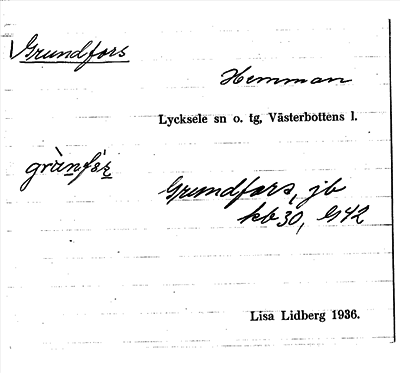 Grundfors
Hemman
Lycksele sn o. tg, Västerbottens l.
Grundfors, jb
kb 30, G42
Lisa Lidberg 1936.